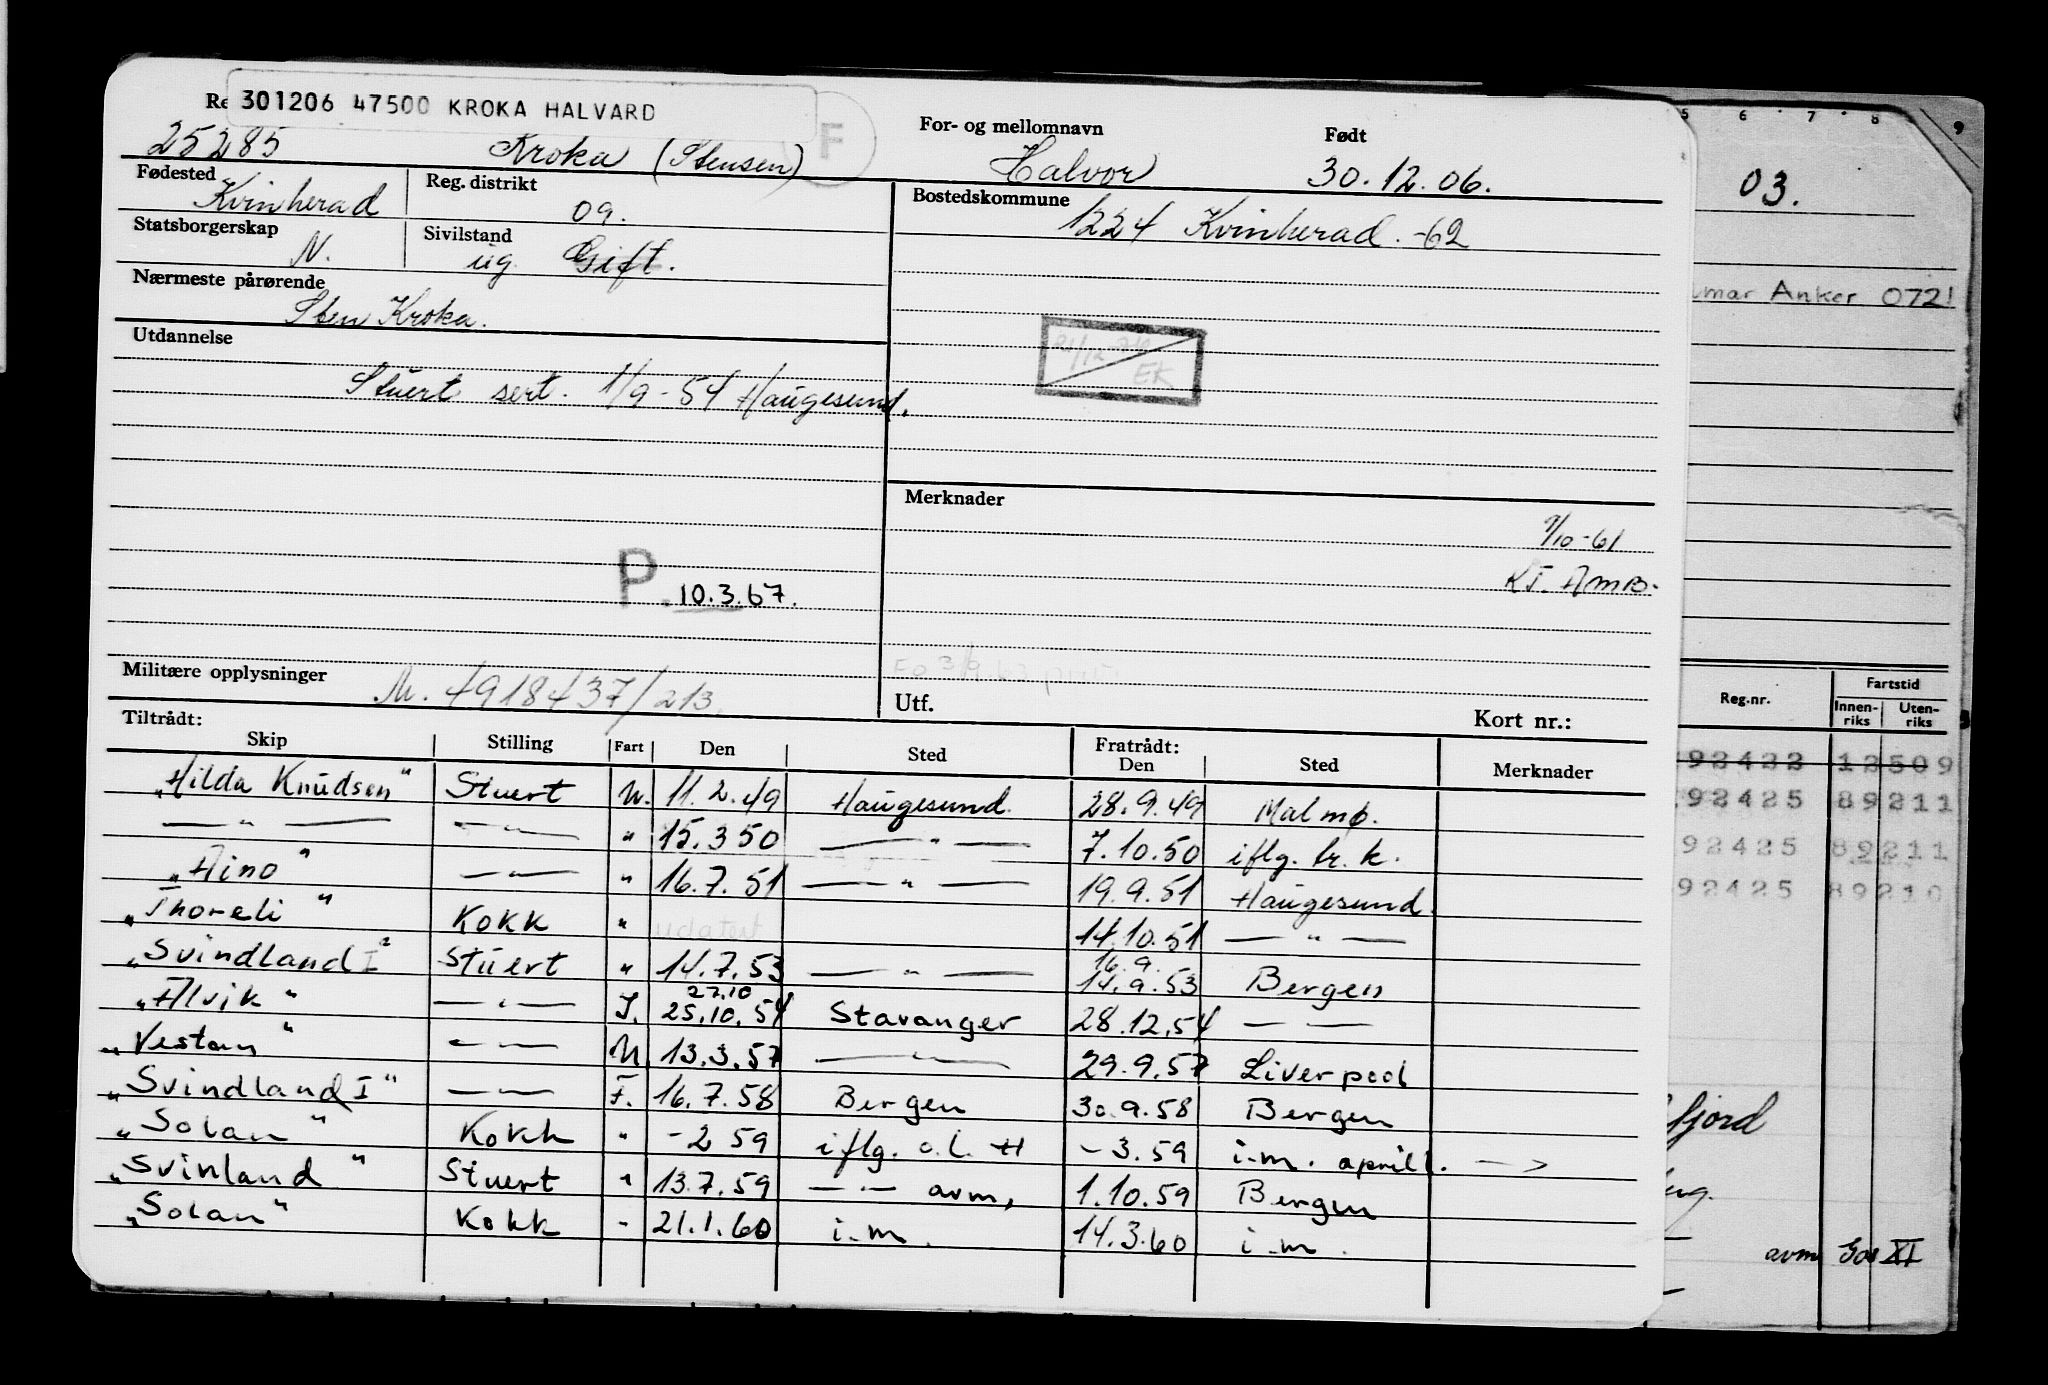 301206 47500 KROKA HALVARD
Re F For- og mellomnavn Født
25285 Kroka (Stensen) Halvor 30.12.06.
Fødested Kvinherad Reg. distrikt 09. Bostedskommune 1224 Kvinherad. -62
Statsborgerskap N. Sivilstand ug. Gift.
Nærmeste pårørende
Sten Kroka.
Utdannelse
Stuert sert. 1/9-54 Haugesund.
21/12 EK
Merknader
/10-61
KT. AMB.
P. 10.3.67.
Militære opplysninger M. 4918437/213
Utf. Kort nr.:
Tiltrådt: Fratrådt:
Skip Stilling Fart Den Sted Den Sted Merknader
"Hilda Knudsen" Stuert U. 11.2.49 Haugesund. 28.9.49 Malmø.
— " — — " — " 15.3 50 — " — 7.10.50 iflg. br. k.
"Aino" — " — " 16.7.51 — " — 19.9.51 Haugesund.
"Thoreli" Kokk " udatert 14.10.51 — " —
"Svindland I" Stuert " 14.7.53 — " — 16.9. 14.9.53 Bergen
"Alvik" — " — I. 27.10 25.10.54 Stavanger 28.12.54 — —
"Vestan" — " — U. 13.3.57 — — 29.9.57 Liverpool
"Svindland I" — — F. 16.7.58 Bergen 30.9.58 Bergen
"Solan" Kokk " -2 59 iflg. o.l. H -3.59 i.m. april. —>
"Svinland" Stuert " 13.7.59 — — avm, 1.10.59 Bergen
"Solan" Kokk - 21.1.60 i.m. 14.3.60 i.m.
5 6 7 8 9
03.
lmar Anker 0721
Reg.nr. Fartstid
Innen-riks Uten-riks
92422 12509
92425 89211
92425 89211
92425 89210
fjord
avm XI